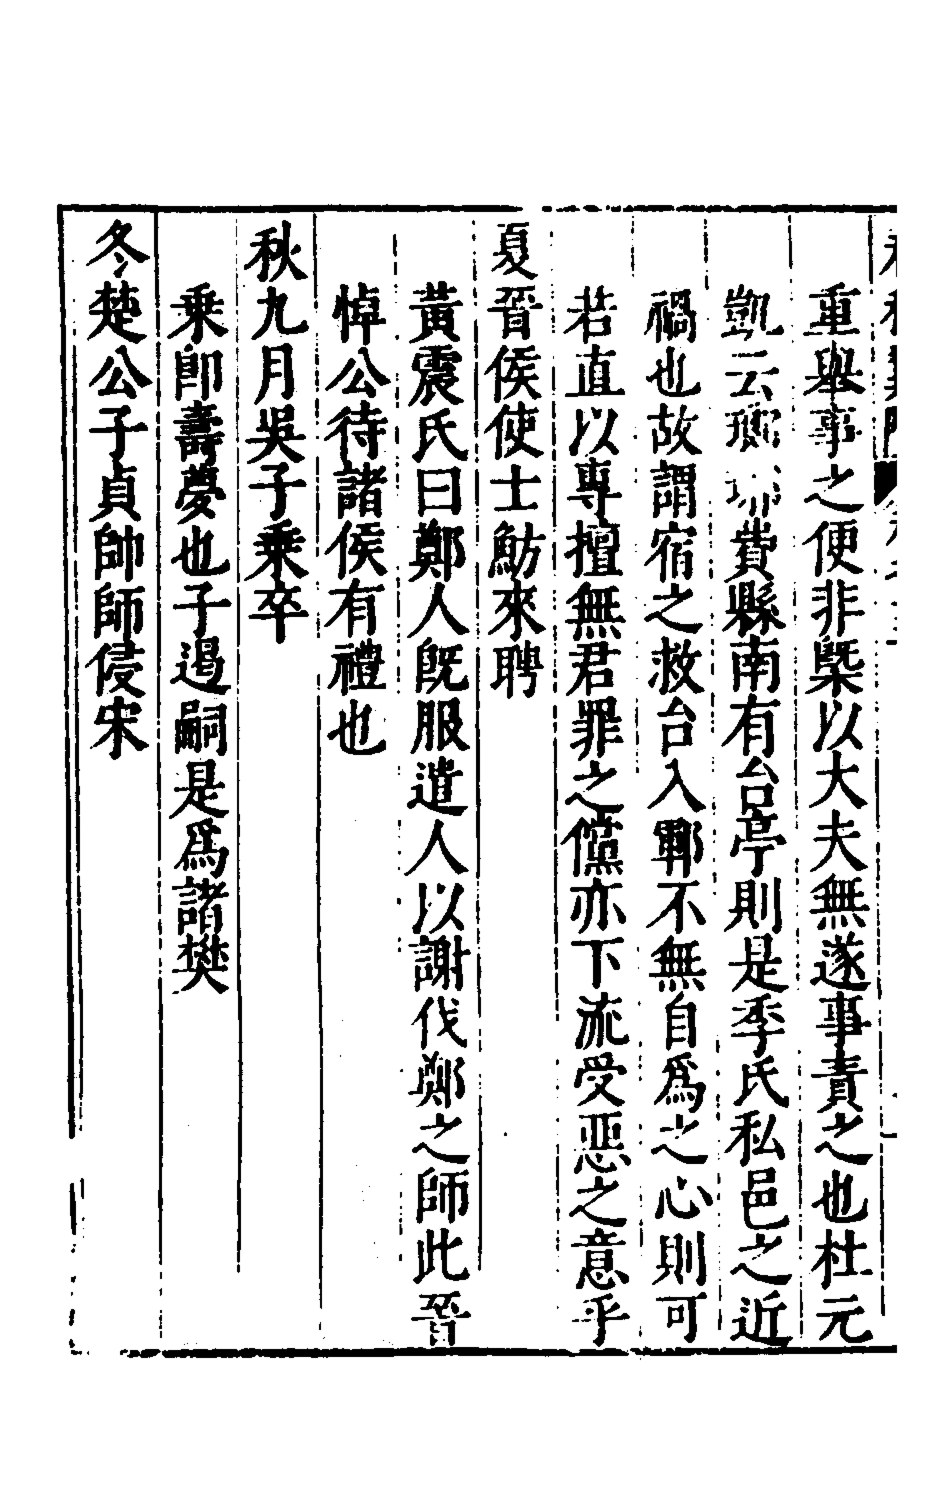 重舉事之便非槩以大夫無遂事責之也杜元
凱云瑯琊費縣南有台亭則是季氏私邑之近
禍也故謂宿之救台入鄆不無自爲之心則可
若直以專擅無君罪之儻亦下流受惡之意乎
夏晉侯使士魴來聘
黃震氏曰鄭人旣服遣人以謝伐鄭之師此晉
悼公待諸侯有禮也
秋九月吳子乘卒
乘卽壽夢也子遏嗣是爲諸樊
冬楚公子貞帥師侵宋